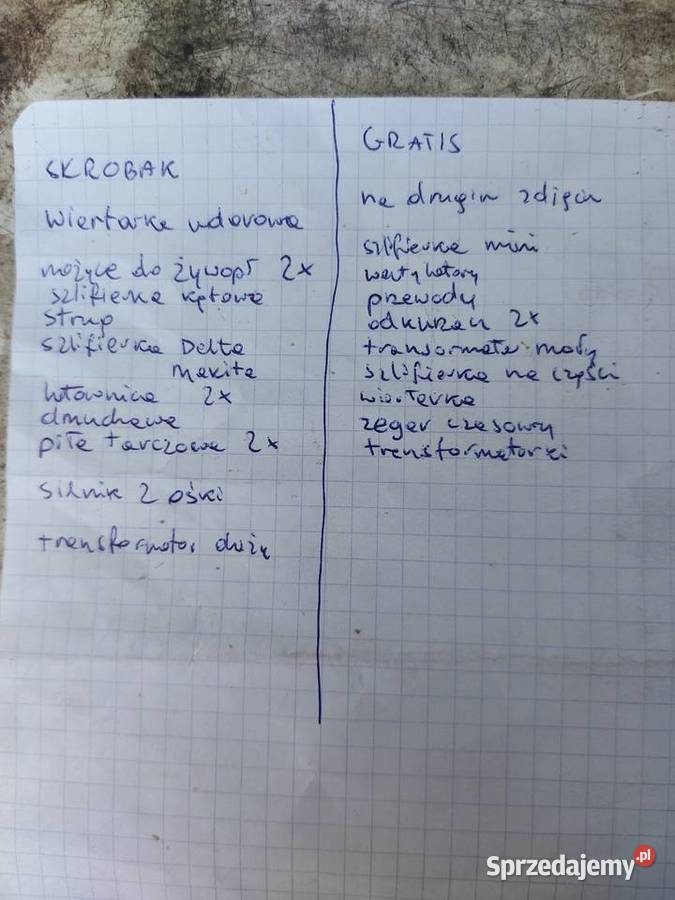 SKROBAK
Wiertarka udarowa
nożyce do żywopł 2x
szlifierka kątowa
Strug
szlifierka Delta
Makita
lutownica 2x
dmuchawa
piła tarczowa 2x
silnik 2 ośki
transformator duży
GRATIS
na drugim zdięciu
szlifierka mini
wentylatory
przewody
odkurzacz 2x
transormator mały
szlifierka na części
wiertarka
zegar czasowy
transformatorki
Sprzedajemy.pl